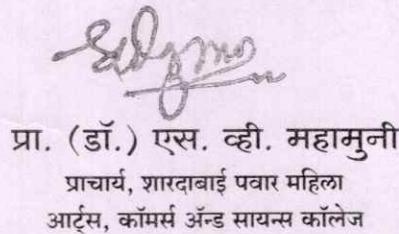 प्रा. (डॉ.) एस. व्ही. महामुनी
प्राचार्य, शारदाबाई पवार महिला
आर्ट्स, कॉमर्स ॲन्ड सायन्स कॉलेज